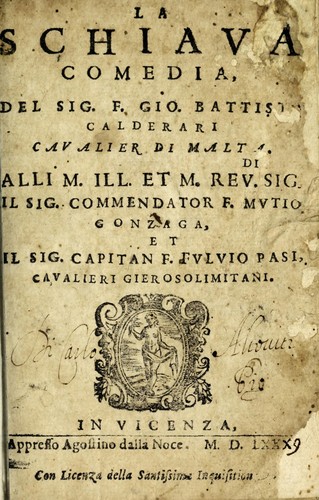 LA
SCHIAVA
COMEDIA,
DEL SIG. F. GIO. BATTIST
CALDERARI
CAVALIER DI MALTA.
DI
ALLI M. ILL. ET M. REV. SIG.
IL SIG. COMMENDATOR F. MVTIO
GONZAGA,
ET
IL SIG. CAPITAN F. FVLVIO PASI,
CAVALIERI GIEROSOLIMITANI.
Di Carlo
IN VICENZA,
Appresso Agostino dalla Noce. M. D. LXXX9
Con Licenza della Santissima Inquisition